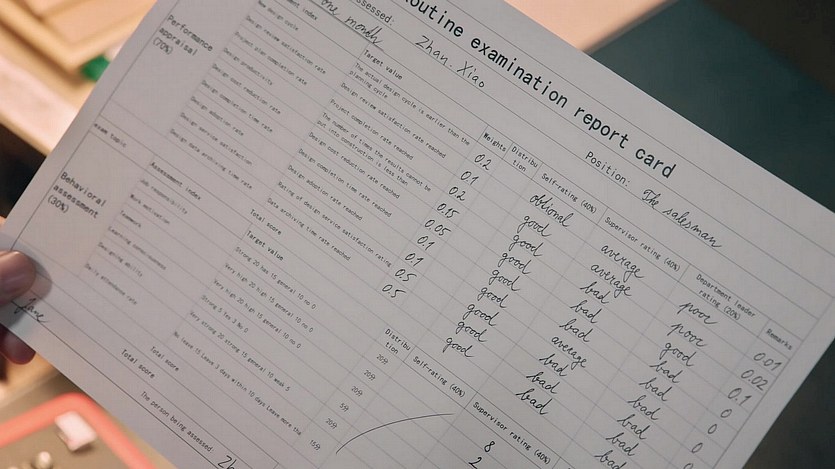 Routine examination report card
Assessed: Zhan Xiao
Position: The salesman
one month
Performance appraisal (70%)
Target value
Weights
Distribution
Self-rating (40%)
Supervisor rating (40%)
Department leader rating (20%)
Remarks
New design cycle
The actual design cycle is earlier than the planning cycle
0.2
obtional
average
poor
0.01
Design review satisfaction rate
Design review satisfaction rate reached
0.1
good
average
poor
0.02
Project plan completion rate
Project completion rate reached
0.2
good
bad
good
0.1
Design productivity
The number of times the results cannot be put into construction is less than
0.15
good
bad
bad
0
Design cost reduction rate
Design cost reduction rate reached
0.05
good
bad
bad
0
Design completion time rate
Design completion time rate reached
0.1
good
average
bad
0
Design adoption rate
Design adoption rate reached
0.1
good
bad
bad
Design service satisfaction
Rating of design service satisfaction rating
0.5
good
bad
bad
Design data archiving time rate
Data archiving time rate reached
0.5
good
bad
Total score
exam topic
Assessment index
Target value
Distribution
Self-rating (40%)
Supervisor rating (40%)
Behavioral assessment (30%)
Job responsibility
Strong 20 has 15 general 10 no 0
20分
8
Work motivation
Very high 20 high 15 general 10 no 0
20分
2
Teamwork
Very high 20 high 15 general 10 no 0
20分
Learning consciousness
Strong 5 Yes 3 No 0
5分
Designing ability
Very strong 20 strong 15 general 10 week 5
20分
Daily attendance rate
No leave 15 Leave 3 days within 10 days Leave more the
15分
Total score
Total score
The person being assessed: